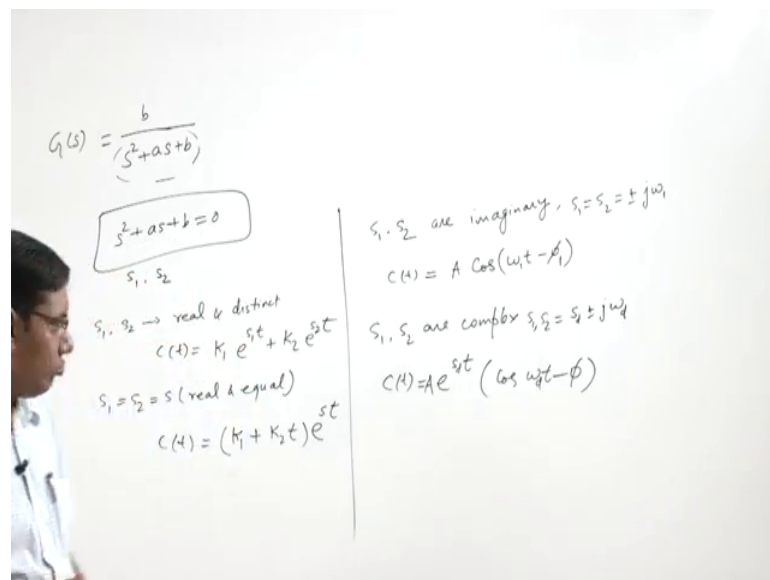 G(s) = b / (s² + as + b)
s² + as + b = 0
s₁, s₂
s₁, s₂ → real & distinct
c(t) = K₁ e^{s₁t} + K₂ e^{s₂t}
s₁ = s₂ = s (real & equal)
c(t) = (K₁ + K₂t) e^{st}
s₁, s₂ are imaginary, s₁ = s₂ = ± jω₁
c(t) = A Cos(ω₁t − φ₁)
s₁, s₂ are complex s₁, s₂ = s_d ± jω_d
c(t) = A e^{s_d t} (Cos ω_d t − φ)